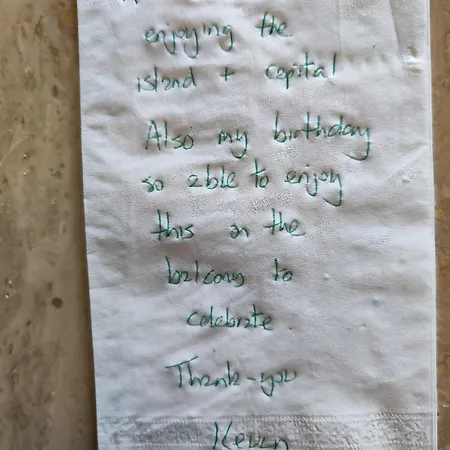 enjoying the
island + capital
Also my birthday
so able to enjoy
this on the
balcony to
celebrate.
Thank-you
Kevin